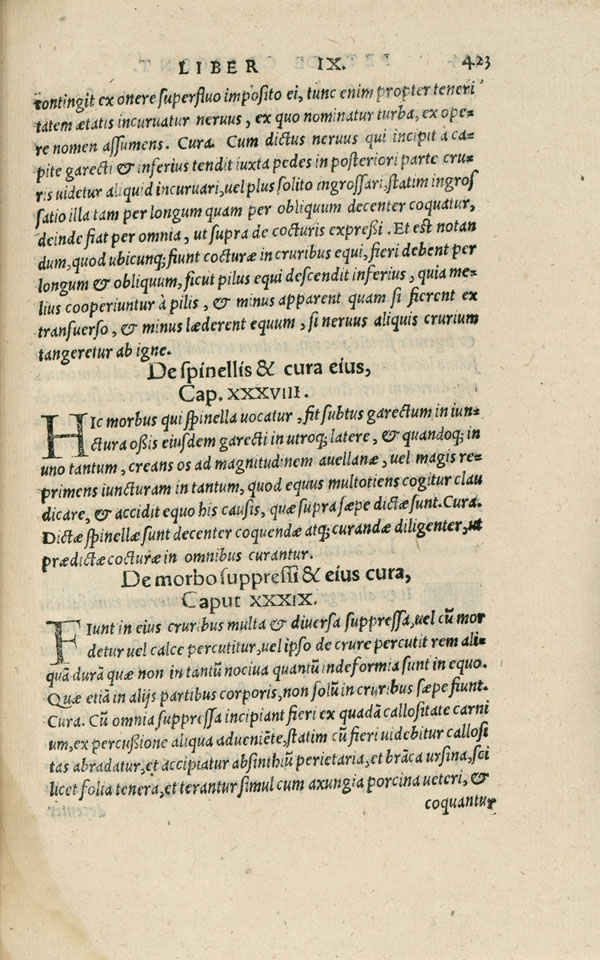 LIBER IX. 423
contingit ex onere superfluo imposito ei, tunc enim propter teneri
tatem ætatis incuruatur neruus, ex quo nominatur turba, ex ope-
re nomen assumens. Cura. Cum dictus neruus qui incipit à ca-
pite garecti & inferius tendit iuxta pedes in posteriori parte cru-
ris uidetur aliquid incuruari, uel plus solito ingrossari, statim ingros
satio illa tam per longum quam per obliquum decenter coquatur,
deinde fiat per omnia, ut supra de cocturis expreßi. Et est notan
dum, quod ubicunq; fiunt cocturæ in cruribus equi, fieri debent per
longum & obliquum, sicut pilus equi descendit inferius, quia me-
lius cooperiuntur à pilis, & minus apparent quam si fierent ex
transuerso, & minus læderent equum, si neruus aliquis crurium
tangeretur ab igne.
De spinellis & cura eius,
Cap. XXXVIII.
HIc morbus qui spinella uocatur, fit subtus garectum in iun-
ctura oßis eiusdem garecti in utroq; latere, & quandoq; in
uno tantum, creans os ad magnitudinem auellanæ, uel magis re-
primens iuncturam in tantum, quod equus multotiens cogitur clau
dicare, & accidit equo his causis, quæ supra sæpe dictæ sunt. Cura.
Dictæ spinellæ sunt decenter coquendæ atq; curandæ diligenter, ut
prædictæ cocturæ in omnibus curantur.
De morbo suppressi & eius cura,
Caput XXXIX.
FIunt in eius cruribus multa & diuersa suppressa, uel cū mor
detur uel calce percutitur, uel ipso de crure percutit rem ali-
quā durā quæ non in tantū nociua quantū indeformia sunt in equo.
Quæ etiā in alijs partibus corporis, non solū in cruribus sæpe fiunt.
Cura. Cū omnia suppressa incipiant fieri ex quadā callositate carni
um, ex percußione aliqua adueniēte, statim cū fieri uidebitur callosi
tas abradatur, et accipiatur absinthiū perietaria, et brāca ursina, sci
licet folia tenera, et terantur simul cum axungia porcina ueteri, &
coquantur